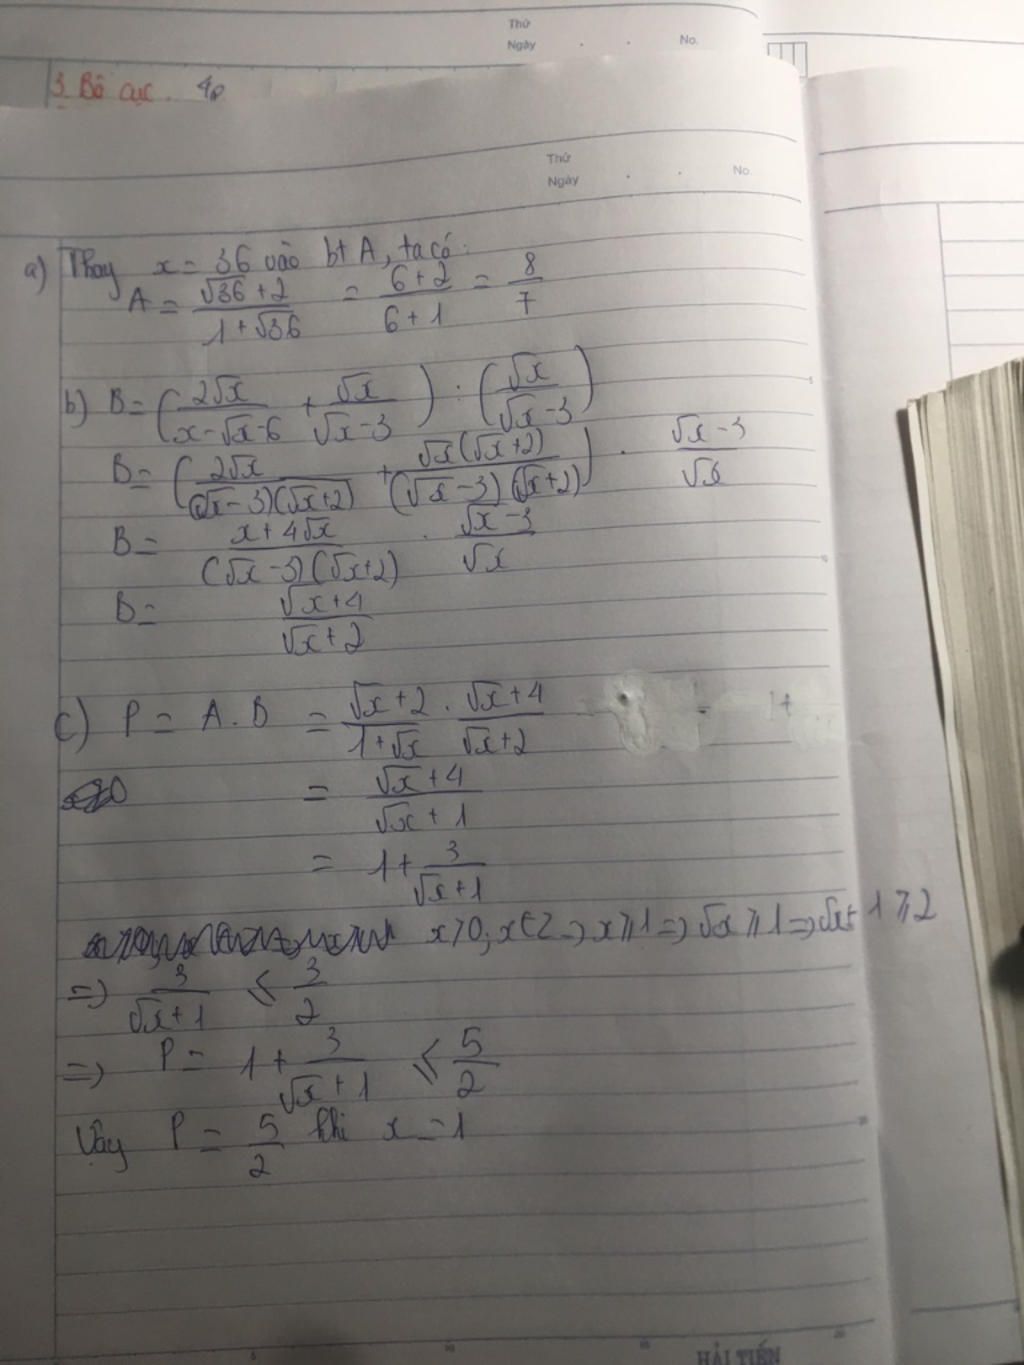 Thứ
Ngày . . No.
3. Bố cục.
Thứ
Ngày . . No.
a) Thay x = 36 vào bt A, ta có:
A = (√36 + 2)/(1 + √36) = (6 + 2)/(6 + 1) = 8/7
b) B = ( 2√x/(x - √x - 6) + √x/(√x - 3) ) : ( √x/(√x - 3) )
B = ( 2√x/((√x - 3)(√x + 2)) + √x(√x + 2)/((√x - 3)(√x + 2)) ) . (√x - 3)/√x
B = (x + 4√x)/((√x - 3)(√x + 2)) . (√x - 3)/√x
B = (√x + 4)/(√x + 2)
c) P = A . B = (√x + 2)/(1 + √x) . (√x + 4)/(√x + 2)
= (√x + 4)/(√x + 1)
= 1 + 3/(√x + 1)
x > 0; x ∈ Z => x ≥ 1 => √x ≥ 1 => √x + 1 ≥ 2
=> 3/(√x + 1) ≤ 3/2
=> P = 1 + 3/(√x + 1) ≤ 5/2
Vậy P = 5/2 khi x = 1
HẢI TIẾN